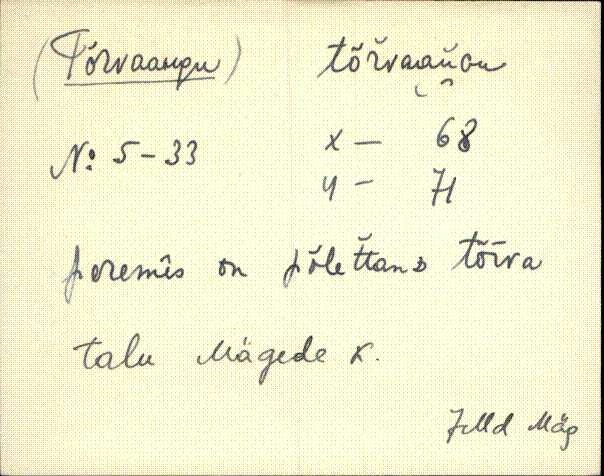 (Tõrvaaugu) tõrvaaùGu
No: 5-33 x - 68
y - 71
peremìs on põleťtanD tõrva
talu Mägede k.
Mäg